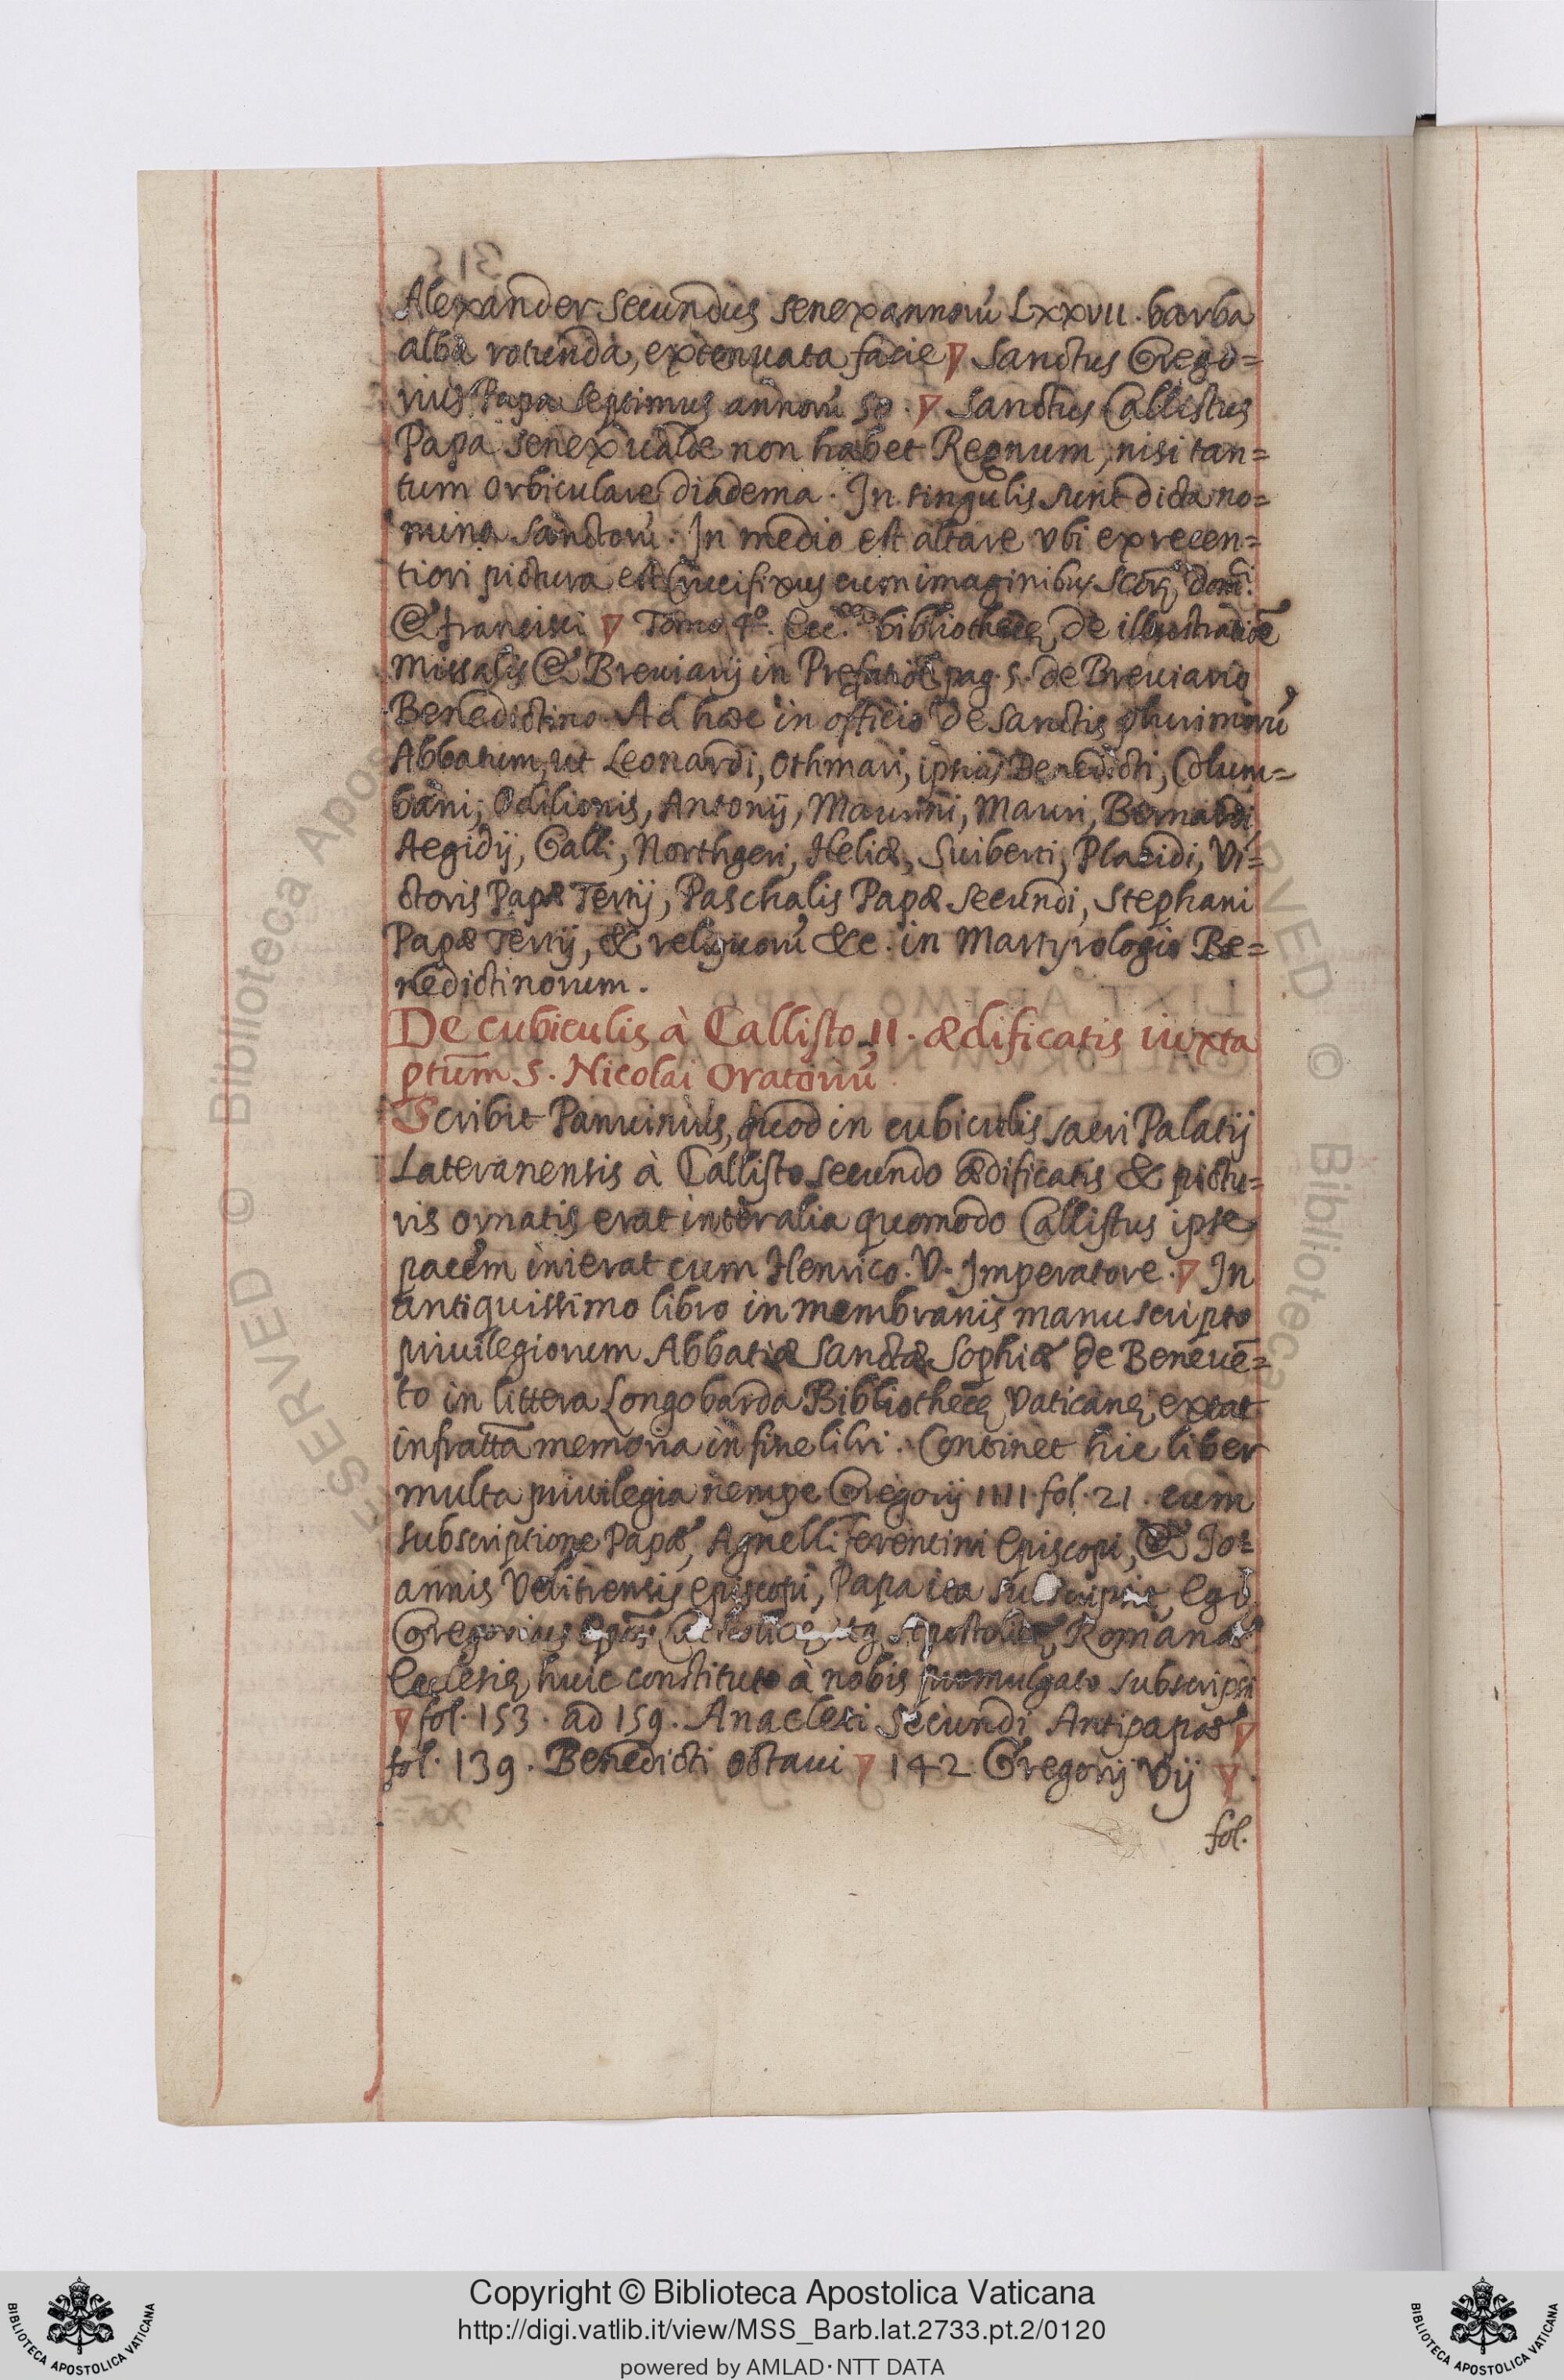 Alexander Secundus senex annorũ LXXVII. barba
alba rotunda, extenuata facie ▽ Sanctus Grego=
rius Papa septimus annorũ 50. ▽ Sanctus Callistus
Papa senex valde non habet Regnum, nisi tan=
tum orbiculare diadema. In singulis sunt dicta no=
mina Sanctorũ. In medio est altare vbi ex recen=
tiori pictura est Crucifixus cum imaginibus Sctorũ domci.
& francisci ▽ Tomo 4.º Ecc.ᶜᵒ bibliothecę de illustratiõe
Missalis & Breuiarij in Prefatiõe pag. 5. de Breuiario
Benedictino. Ad hæc in officio de Sanctis plurimorũ
Abbatum, ut Leonardi, Othmari, ipsius Benedicti, Colum=
bani, Odilionis, Antonij, Maurini, Mauri, Bernardi,
Aegidij, Galli, Northgeri, Heliæ, Suiberti, Placidi, Vi=
ctoris Papæ Tertij, Paschalis Papæ Secundi, Stephani
Papæ Tertij, & reliquorũ &c. in Martyrologio Be=
nedictinorum.
De cubiculis à Callisto II. ædificatis iuxta
ptũm S. Nicolai Oratoriũ
Scribit Panuinius, quod in cubiculis sacri Palatij
Lateranensis à Callisto secundo ædificatis & pictu=
ris ornatis erat inter alia quomodo Callistus ipse
pacem inierat cum Henrico. V. Imperatore. ▽ In
antiquissimo libro in membranis manuscripto
priuilegiorum Abbatiæ Sanctæ Sophiæ de Beneuẽ=
to in littera Longobarda Bibliothecę Vaticanę extat
infratta memoria in fine libri. Continet hic liber
multa priuilegia nempe Gregorij IIII fol. 21. cum
subscriptione Papæ, Agnelli Ferentini Episcopi, & Jo=
annis Velitrensis episcopi, Papa ita subscripsit, Ego
Gregorius Epũs Catholicę atq Apostolicę Romanæ
Ecclesię huic constituto à nobis promulgato subscripsi
▽ fol. 153. ad 159. Anacleti Secundi Antipapæ ▽
fol. 139. Benedicti octaui ▽ 142 Gregorij Vij ▽.
fol.
Copyright © Biblioteca Apostolica Vaticana
http://digi.vatlib.it/view/MSS_Barb.lat.2733.pt.2/0120
powered by AMLAD·NTT DATA
BIBLIOTECA APOSTOLICA VATICANA
BIBLIOTECA APOSTOLICA VATICANA